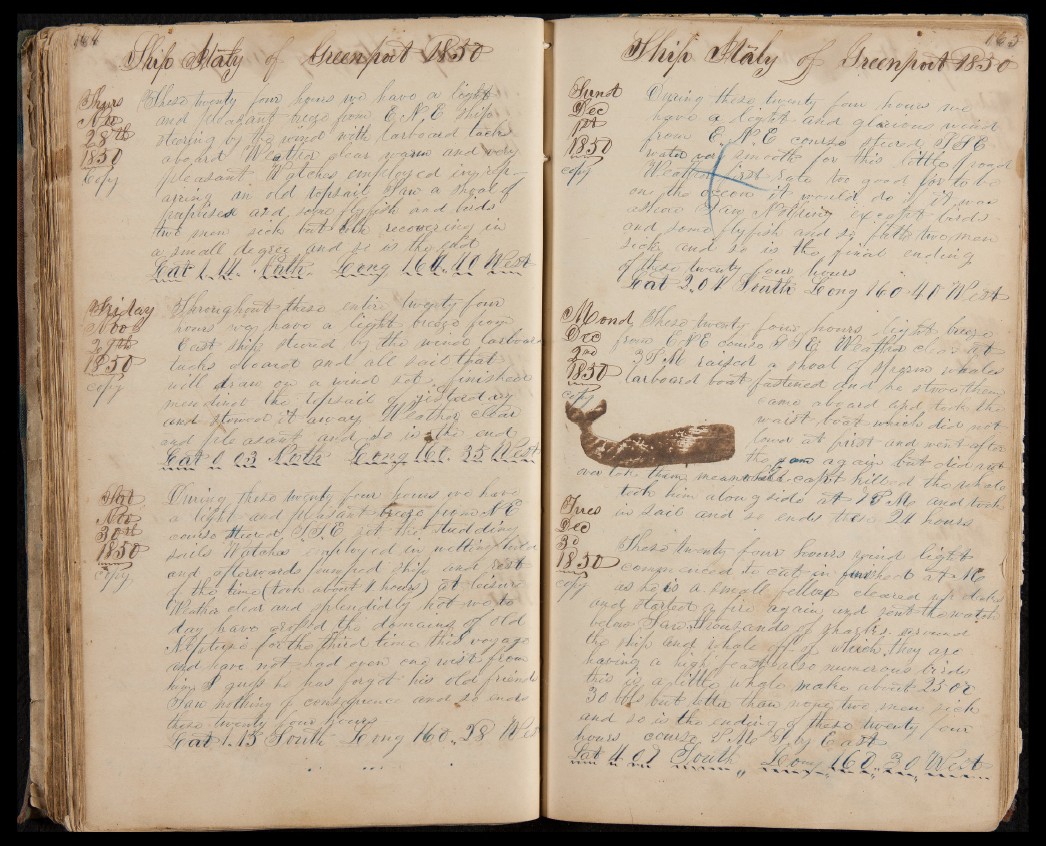 164
Ship Italy of Greenport 1850
Thurs These twenty four hours we have a light
Nov and pleasant breeze from E.N.E Ship
28th steering by the wind with larboard tacks
1850 aboard Weather clear warm and very
Copy pleasant Watches employed in rep-
airing an old topsail Saw a shoal of
and some flyfish and birds
two men sick but both recovering in
a small degree and so is the end
Lat 1.14 North Long 160.40 West
Friday Throughout these entire twenty four
Nov hours we have a light breeze from
29th East ship steered by the wind larboard
1850 tacks aboard and all sail that
copy will draw on a wind set finished
mending the topsail
and stowed it away Weather clear
and pleasant and so is the end
Lat 0 03 North Long 160. 35 West
Sat During these twenty four hours we have
Nov a light and pleasant breeze from N.E
30th course steered S.S.E set the studding
1850 sails Watches employed in
copy and afterwards pumped ship and
of the time (took about 4 hours) at leisure
Weather clear and splendidly hot we to
day have crossed the domains of old
Neptune for the third time this voyage
and have not had even one visit from
him I guess he has forgot his old friends
Saw nothing of consequence and so ends
these twenty four hours
Lat 1.15 South Long 160..38 West
165
Ship Italy of Greenport 1850
Sund During these twenty four hours we
Dec have a light and glorious wind
1st from E.N.E. course steered S.S.E
1850 water very smooth for this little frog
copy Weather too good for to be
on the ocean it would do if it was
ashore Saw Nothing except birds
and some flyfish and so forth two men
sick and so is the final ending
of these twenty four hours
Lat 2.01 South Long 160 41 West
Mond These twenty four hours light breeze
Dec from ENE course S.S.E. Weather clear at
2nd 3 P.M raised a shoal of Sperm whales
1850 larboard boat fastened and he stove them
copy came aboard and took the
waist boat which did not
lower at first and went after
the again but did not
over take them meanwhile capt killed the whale
took him along side at PM and took
in sail and so ends these 24 hours
Tues
Dec
3d These twenty four hours wind light
1850 commenced to cut in finished at M
copy as he is a small fellow cleared up decks
and started a fire again and sent the watch
below Saw thousands of sharks around
the ship and whale off of which they are
having a high feast also numerous birds
this is a little whale make about 25 or
30 bbls but better than none two men sick
and so is the ending of these twenty four
hours course P.M. S. by East
Lat 4 07 South Long 160..30 West